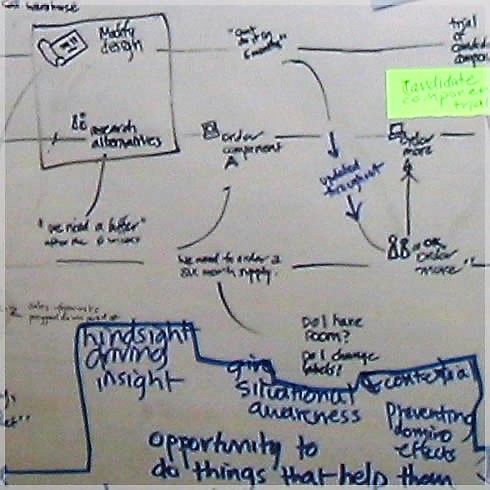 warehouse
Modify
design
"can't do it in
6 months"
trial
of
candidate
Candidate
component
trial
research
alternatives
order
component
A
order
more
updated
throughout
"we need a buffer"
after the 6 weeks
We need to order a
six month supply.
"OK
order
more"
hindsight
driving
insight
Do I have
room?
Do I change
labels?
giving
situational
awareness
contextual
preventing
domino
effects
opportunity to
do things that help them